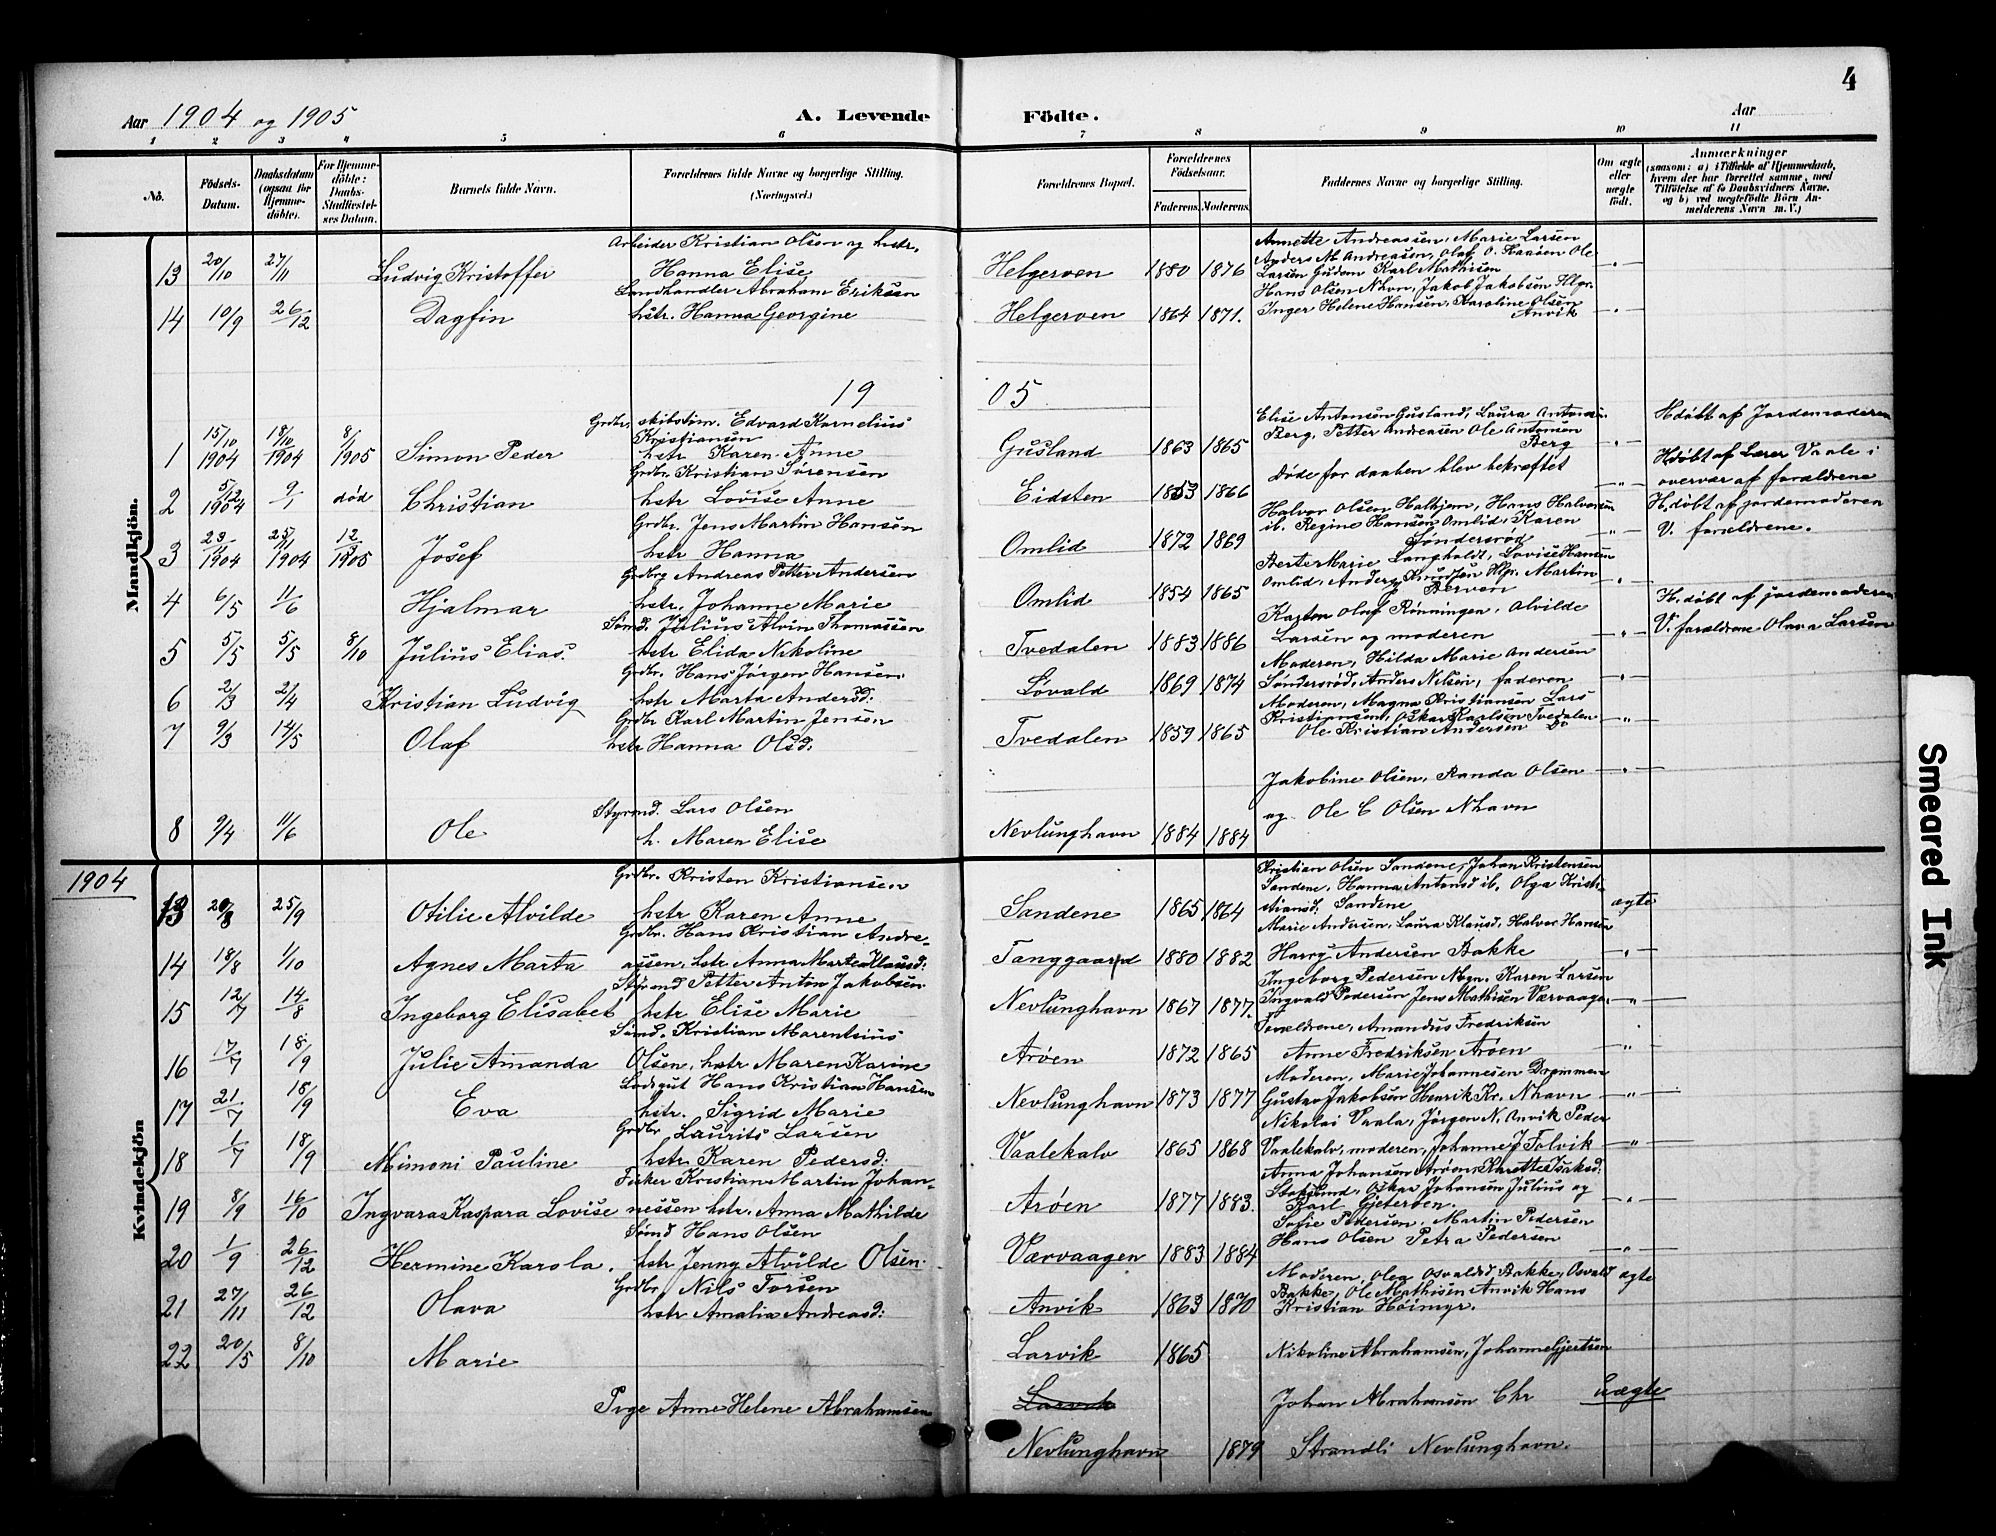 4
Aar 1904 og 1905 A. Levende Födte. Aar
1 2 3 4 5 6 7 8 9 10 11
No. Födsels-Datum. Daabsdatum (ogsaa for Hjemmedöbte). For Hjemmedöbte: Daabs-Stadfæstelses Datum. Barnets fulde Navn. Forældrenes fulde Navne og borgerlige Stilling. (Næringsvei.) Forældrenes Bopæl. Forældrenes Födselsaar. Faderens. Moderens. Faddernes Navne og borgerlige Stilling. Om ægte eller uægte födt. Anmærkninger (saasom: a) i Tilfælde af Hjemmedaab, hvem der har forrettet samme, med Tilföielse af to Daabsvidners Navne, og b) ved uægtefödte Börn Anmelderens Navn m. V.)
Mandkjön.
13 20/10 27/11 Ludvig Kristoffer Arbeider Kristian Olsen og hstr. Hanna Elise Helgeroen 1880 1876 Annette Andreassen, Marie Larsen Anders M Andreasen, Olaf O. Haasen Ole Larsen Gudem Karl Mathisen
14 10/9 26/12 Dagfin Landhandler Abraham Eriksen hstr. Hanna Georgine Helgeroen 1864 1871. Hans Olsen Nhavn, Jakob Jakobsen Hlgr. Inger Helene Hansen, Karoline Olsen Anvik
1905
1 15/10 1904 18/10 1904 8/1 1905 Simon Peder Grdbr. skibstøm. Edvard Kornelius Kristiansen hstr Karen Anne Gusland 1863 1865 Elise Antonsen Gusland, Laura Antons. Berg, Petter Andreasen Ole Antonsen Berg Hdøbt af Jordemoderen
2 5/12 1904 9/1 død Christian Grdbr. Kristian Sørensen hstr Lovise Anne Eidsten 1853 1866 Døde før daaben blev bekræftet Hdøbt af Lærer Vaale i overvær af forældrene
3 23/11 1904 25/11 1904 12/3 1905 Josef Grdbr. Jens Martin Hansen hstr Hanna Omlid 1872 1869 Halvor Olsen Holhjem, Hans Halvorsen ib. Regine Hansen Omlid, Karen Søndersrød H, døbt af jordemoderen V. forældrene.
4 6/5 11/6 Hjalmar Grdbrg Andreas Petter Andersen hstr. Johanne Marie Omlid 1854 1865 Berte Marie Langholdt, Lovise Hansen Omlid, Anders Knudsen Hlgr. Martin Berven
5 5/5 5/5 8/10 Julius Elias. Sømd. Julius Alvin Thomassen hstr Elida Nikoline Tvedalen 1883 1886 Karsten Olaf Rønningen, Alvilde Larsen og moderen H. døbt af jordemoderen V. forældrene Olava Larsen
6 2/3 2/4 Kristian Ludvig Grdbr. Hans Jørgen Hansen hstr Marta Andersd: Løvald 1869 1874 Moderen, Hilda Marie Andersen Søndersrød, Anders Nilsen, faderen
7 9/3 14/5 Olaf Grdbr Karl Martin Jensen hstr Hanna Olsd: Tvedalen 1859 1865 Moderen, Magna Kristiansen Lars Kristiansen, Oskar Karlsen Tvedalen Ole Kristian Andersen Do
8 9/4 11/6 Ole Styrmd. Lars Olsen h. Maren Elise Nevlunghavn 1884 1884 Jakobine Olsen, Randa Olsen og Ole C Olsen Nhavn
1904
Kvindekjön
13 20/8 25/9 Otilie Alvilde Grdbr. Kristen Kristiansen hstr Karen Anne Sandene 1865 1864 Kristian Olsen Sandene, Johan Kristensen Sandene, Hanna Antonsd ib, Olga Kristiansd. Sandene ægte
14 18/8 1/10 Agnes Marta Grdbr. Hans Kristian Andreassen, hstr Anna Marte Klausd: Tanggaard 1880 1882 Marie Andersen, Laura Klausd, Halvor Hansen Harry Andersen Bakke
15 12/7 14/8 Ingeborg Elisabet Styrmd Petter Anton Jakobsen hstr Elise Marie Nevlunghavn 1867 1877. Ingeborg Pedersen Nhgn, Karen Larsen Ingvald Pedersen Jens Mathisen Værvaage.
16 17/7 18/9 Julie Amanda Sømd. Kristian Marentsius Olsen, hstr Maren Karine Arøen 1872 1865 Forældrene, Amandus Fredriksen Anne Fredriksen Arøen
17 21/7 18/9 Eva Lodsgut Hans Kristian Hansen hstr. Sigrid Marie Nevlunghavn 1873 1877 Moderen, Marie Johannesen Drammen Gustav Jakobsen Henrik Kr. Nhavn
18 1/7 18/9 Mimoni Pauline Grdbr Laurits Larsen hstr Karen Pedersd: Vaalekalv 1865 1868 Nikolai Vaala, Jørgen N. Anvik Peder Vaalekalv, moderen, Johanne J Folvik
19 8/9 16/10 Ingvara Kaspara Lovise Fisker Kristian Martin Johannessen hstr. Anna Mathilde Arøen 1877 1883. Anna Johansen Arøen, Karette Isaksd: Stokslund, Oskar Johansen Julius og Karl Gjeterøen.
20 1/9 26/12 Hermine Karola. Sømd Hans Olsen hstr Jenny Alvilde Olsen Værvaagen 1883 1884 Sofie Pedersen, Martin Pedersen Hans Olsen Petra Pedersen
21 27/11 26/12 Olava Grdbr. Nils Torsen hstr Amalia Andreasd: Anvik 1863 1870 Moderen, Olea Osvaldsd Bakke, Osvald Bakke, Ole Mathisen Anvik Hans Kristian Høimyr. ægte
22 20/5 8/10 Marie Larvik 1865 Nikoline Abrahamsen, Johanne Gjertsen
Pige Anne Helene Abrahamsen Larvik Johan Abrahamsen Chr uægte
Nevlunghavn 1879 Strandli Nevlunghavn.
Smeared Ink